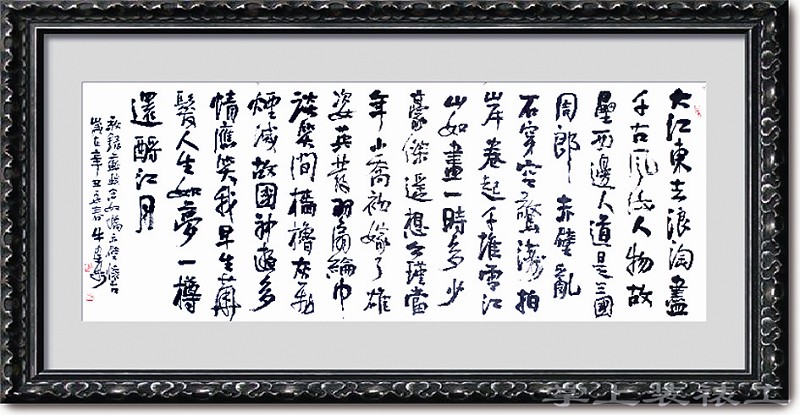 大江東去浪淘盡
千古風流人物故
壘西邊人道是三國
周郎赤壁亂
石穿空驚濤拍
岸卷起千堆雪江
山如畫一時多少
豪傑遥想公瑾當
年小喬初嫁了雄
姿英發羽扇綸巾
談笑間檣櫓灰飛
煙滅故國神遊多
情應笑我早生華
髮人生如夢一樽
還酹江月
念奴嬌赤壁懷古
歲在辛丑春牛
掌上装裱工